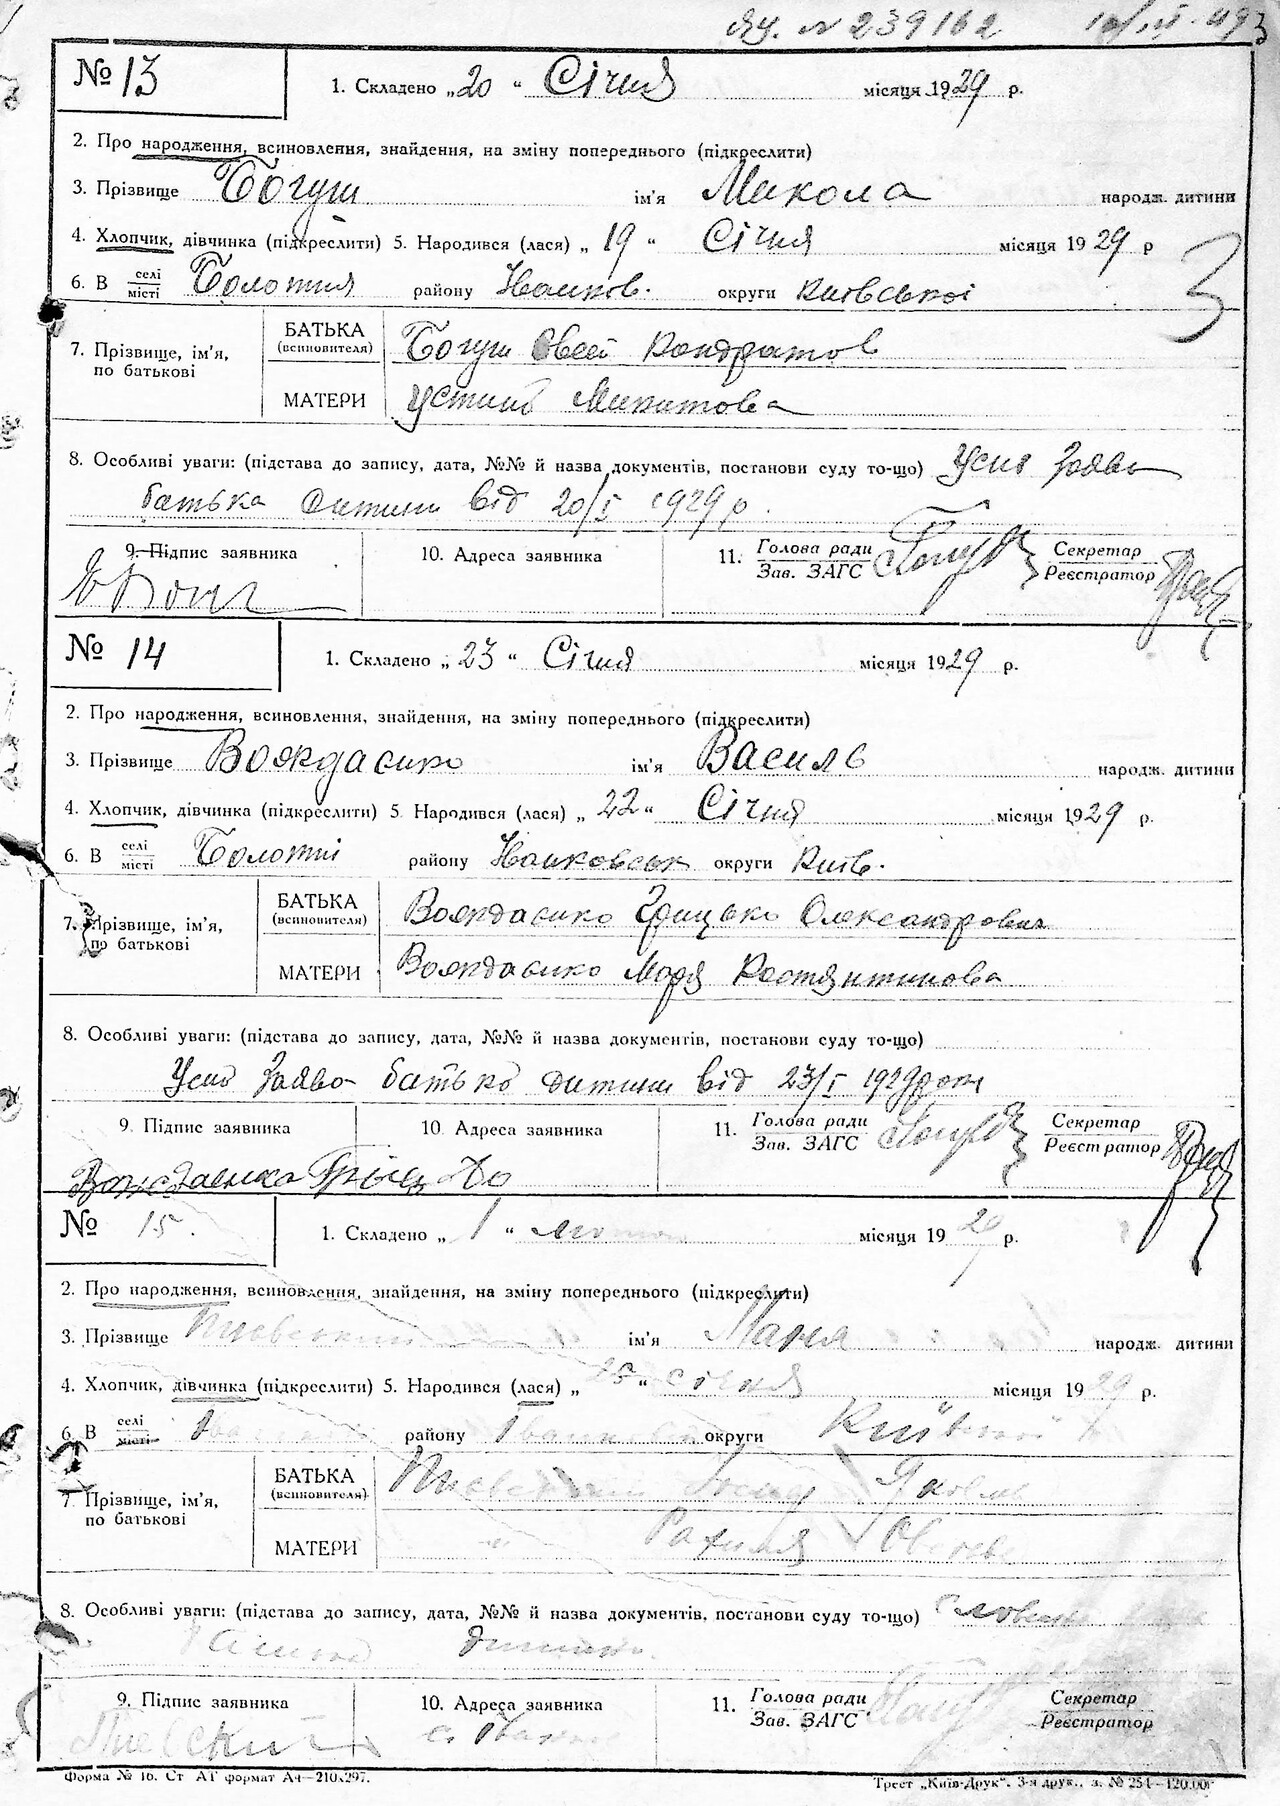 № 239162
№ 13
1. Складено „20“ Січня місяця 1929 р.
2. Про народження, всиновлення, знайдення, на зміну попереднього (підкреслити)
3. Прізвище Богуш ім'я Микола народж. дитини
4. Хлопчик, дівчинка (підкреслити) 5. Народився (лася) „19“ Січня місяця 1929 р
6. В селі місті Болотня району Іванков. округи Київської
3
7. Прізвище, ім'я, по батькові
БАТЬКА (всиновителя) Богуш Овсей Кондратов
МАТЕРИ Устина Микитова
8. Особліві уваги: (підстава до запису, дата, №№ й назва документів, постанови суду то-що) Усна заява
батька дитини від 20/I 1929 р.
9. Підпис заявника 10. Адреса заявника 11. Голова ради Зав. ЗАГС Секретар Реєстратор
№ 14
1. Складено „23“ Січня місяця 1929 р.
2. Про народження, всиновлення, знайдення, на зміну попереднього (підкреслити)
3. Прізвище Вождаенко ім'я Василь народж. дитини
4. Хлопчик, дівчинка (підкреслити) 5. Народився (лася) „22“ Січня місяця 1929 р.
6. В селі місті Болотні району Іванковськ округи Київ.
7. Прізвище, ім'я, по батькові
БАТЬКА (всиновителя) Вождаенко Грицько Олександрович
МАТЕРИ Вождаенко Марія Костянтинова
8. Особливі уваги: (підстава до запису, дата, №№ й назва документів, постанови суду то-що)
Усна заява батька дитини від 23/I 1929 рок
9. Підпис заявника 10. Адреса заявника 11. Голова ради Зав. ЗАГС Секретар Реєстратор
Вождаенко Грицько
№ 15.
1. Складено „1“ лютого місяця 1929 р.
2. Про народження, всиновлення, знайдення, на зміну попереднього (підкреслити)
3. Прізвище ім'я Маня народж. дитини
4. Хлопчик, дівчинка (підкреслити) 5. Народився (лася) „25“ січня місяця 1929 р.
6. В селі місті району округи
7. Прізвище, ім'я, по батькові
БАТЬКА (всиновителя) Яковл
МАТЕРИ Рахиля
8. Особливі уваги: (підстава до запису, дата, №№ й назва документів, постанови суду то-що)
дитини
9. Підпис заявника 10. Адреса заявника 11. Голова ради Зав. ЗАГС Секретар Реєстратор
Форма № 16. Ст АТ формат А4—210х297.
Трест „Київ-Друк“, 3-я друк., з. № 254—120.00